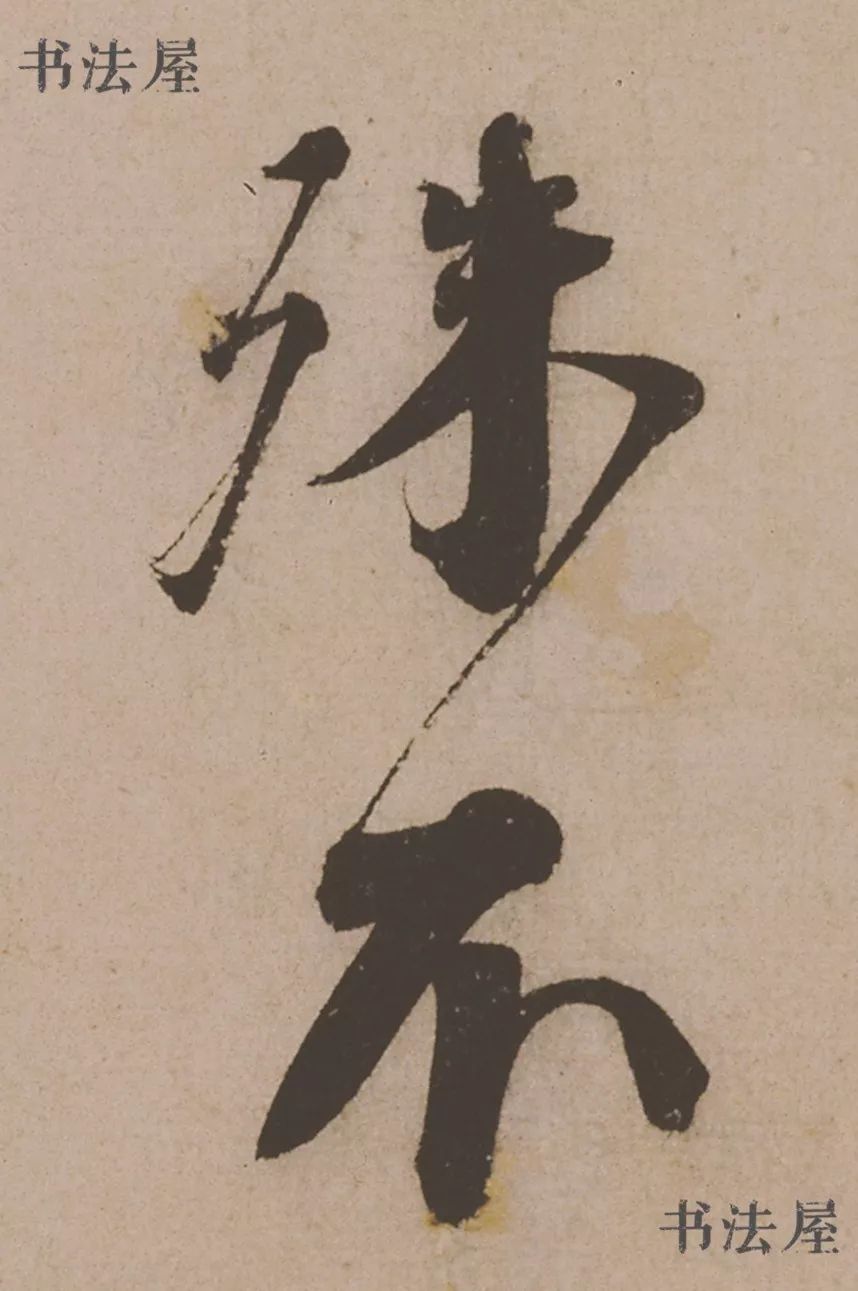 书法屋
殊不
书法屋